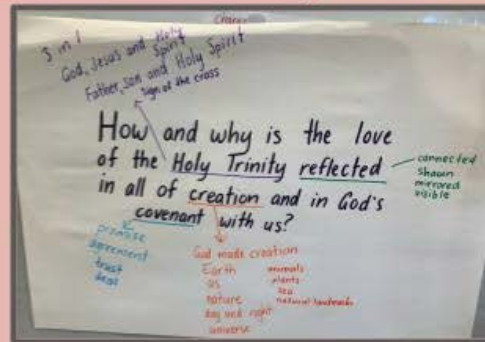 3 in 1
God, Jesus and Holy Spirit
Father, son and Holy Spirit
sign of the cross
How and why is the love
of the Holy Trinity reflected
in all of creation and in God's
covenant with us?
connected
shown
mirrored
visible
promise
agreement
trust
deal
God made creation
Earth
us
nature
day and night
universe
animals
plants
sea
natural landmarks